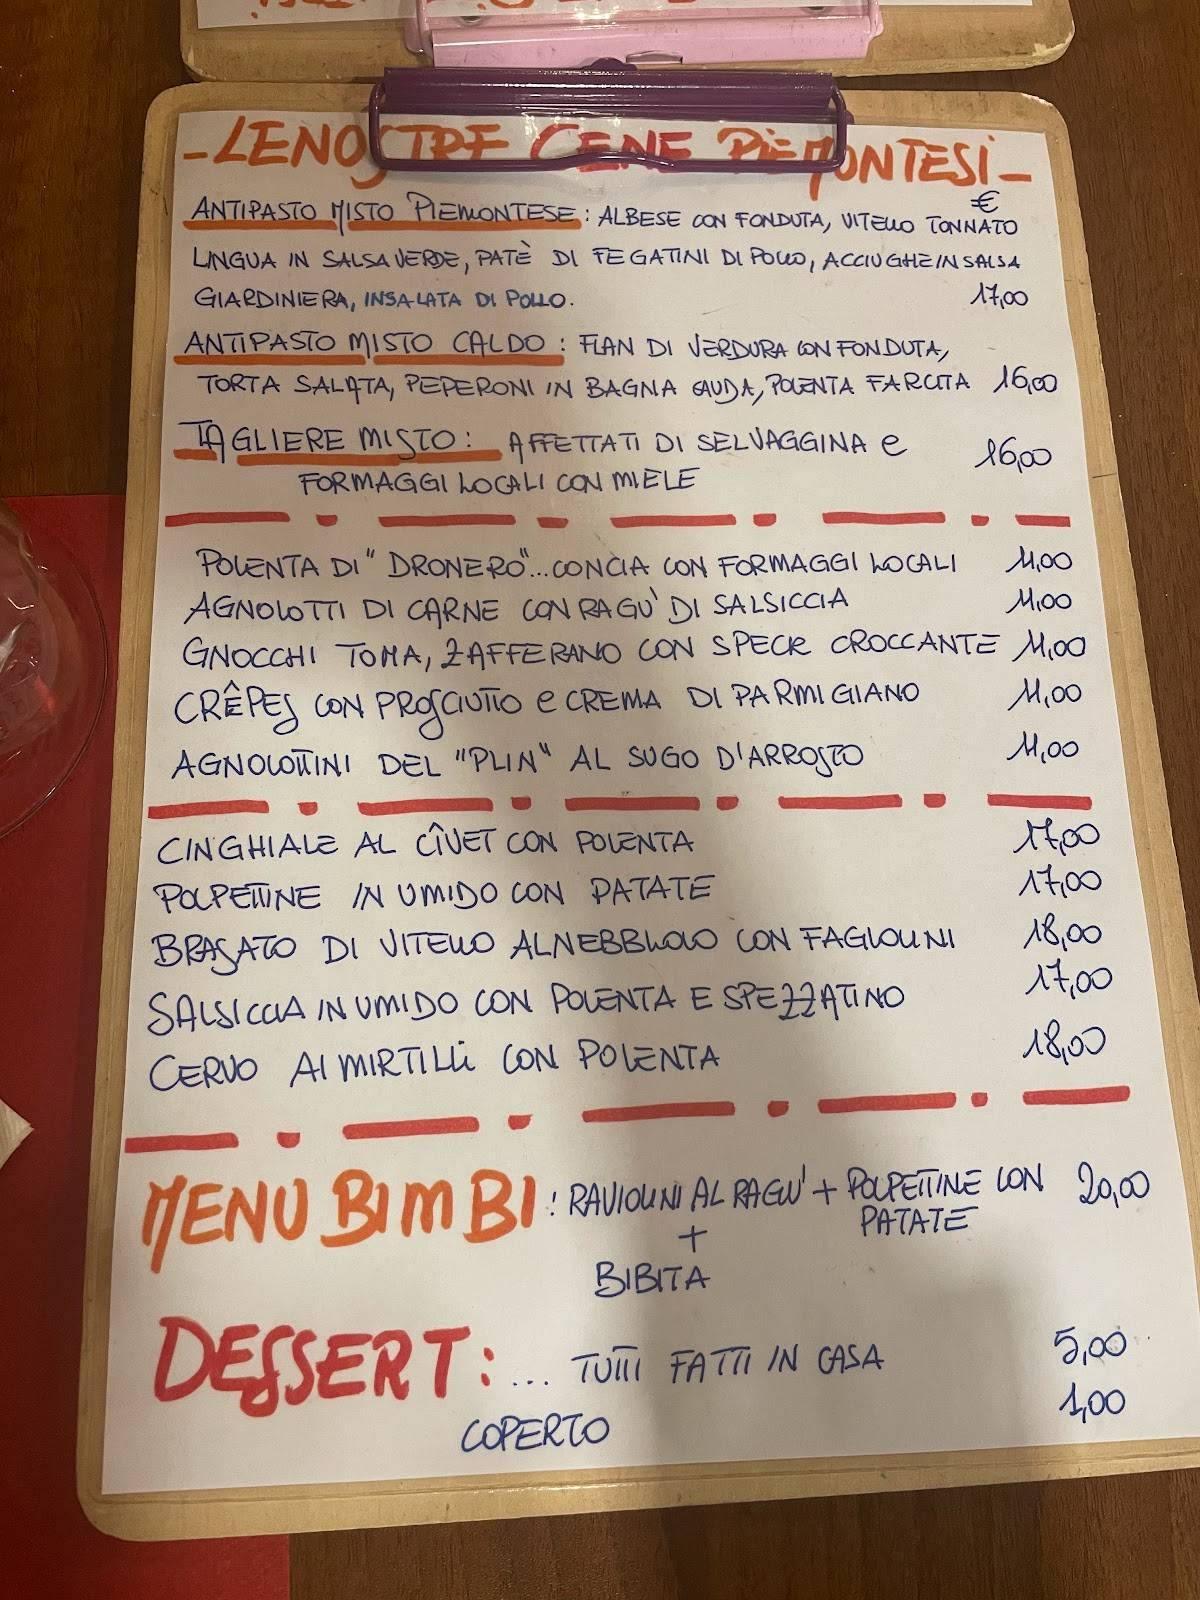 - LE NOSTRE CENE PIEMONTESI -
€
ANTIPASTO MISTO PIEMONTESE: ALBESE CON FONDUTA, VITELLO TONNATO
LINGUA IN SALSA VERDE, PATÈ DI FEGATINI DI POLLO, ACCIUGHE IN SALSA
GIARDINIERA, INSALATA DI POLLO. 17,00
ANTIPASTO MISTO CALDO: FLAN DI VERDURA CON FONDUTA,
TORTA SALATA, PEPERONI IN BAGNA CAUDA, POLENTA FARCITA 16,00
TAGLIERE MISTO: AFFETTATI DI SELVAGGINA e 16,00
FORMAGGI LOCALI CON MIELE
POLENTA DI "DRONERO"...CONCIA CON FORMAGGI LOCALI 11,00
AGNOLOTTI DI CARNE CON RAGU' DI SALSICCIA 11,00
GNOCCHI TOMA, ZAFFERANO CON SPECK CROCCANTE 11,00
CRÊPES CON PROSCIUTTO e CREMA DI PARMIGIANO 11,00
AGNOLOTTINI DEL "PLIN" AL SUGO D'ARROSTO 11,00
CINGHIALE AL CÎVET CON POLENTA 17,00
POLPETTINE IN UMIDO CON PATATE 17,00
BRASATO DI VITELLO AL NEBBIOLO CON FAGIOLINI 18,00
SALSICCIA IN UMIDO CON POLENTA E SPEZZATINO 17,00
CERVO AI MIRTILLI CON POLENTA 18,00
MENU BIMBI: RAVIOLINI AL RAGU' + POLPETTINE CON 20,00
PATATE
+
BIBITA
DESSERT: ... TUTTI FATTI IN CASA 5,00
COPERTO 1,00